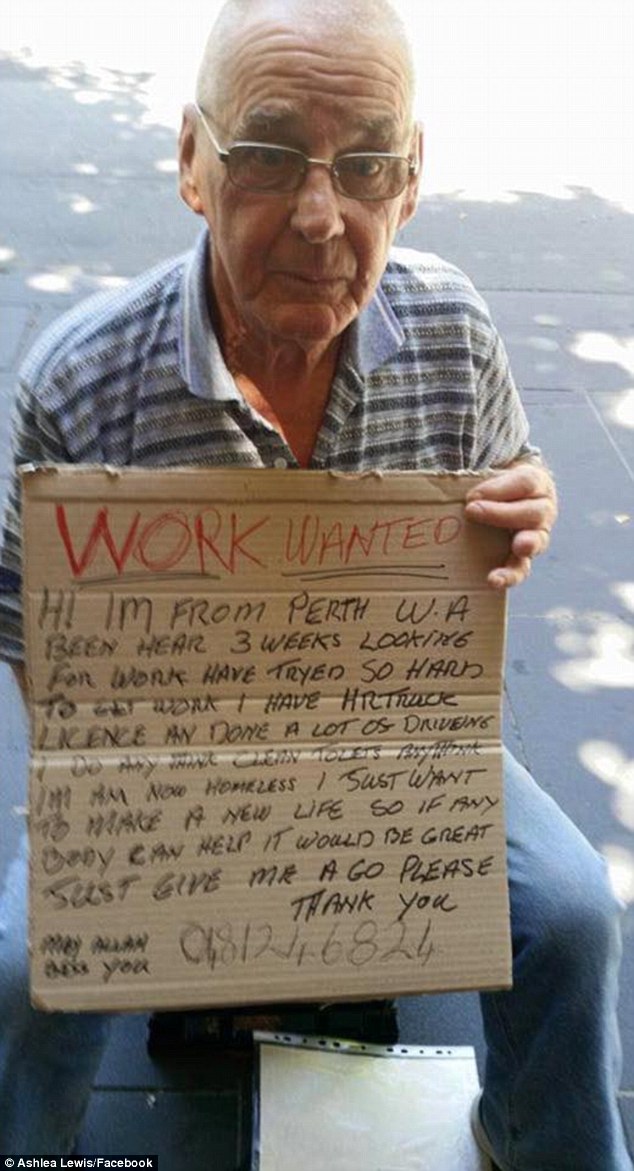 WORK WANTED
HI IM FROM PERTH W.A
BEEN HEAR 3 WEEKS LOOKING
FOR WORK HAVE TRYED SO HARD
TO GET WORK I HAVE HR TRUCK
LICENCE AN DONE A LOT OS DRIVEING
I DO ANY THINK CLEAN TOLETS ANYTHINK
IM AM NOW HOMELESS I JUST WANT
TO MAKE A NEW LIFE SO IF ANY
BODY CAN HELP IT WOULD BE GREAT
JUST GIVE ME A GO PLEASE
THANK YOU
MAY ALLAH
BLESS YOU
0481246824
© Ashlea Lewis/Facebook